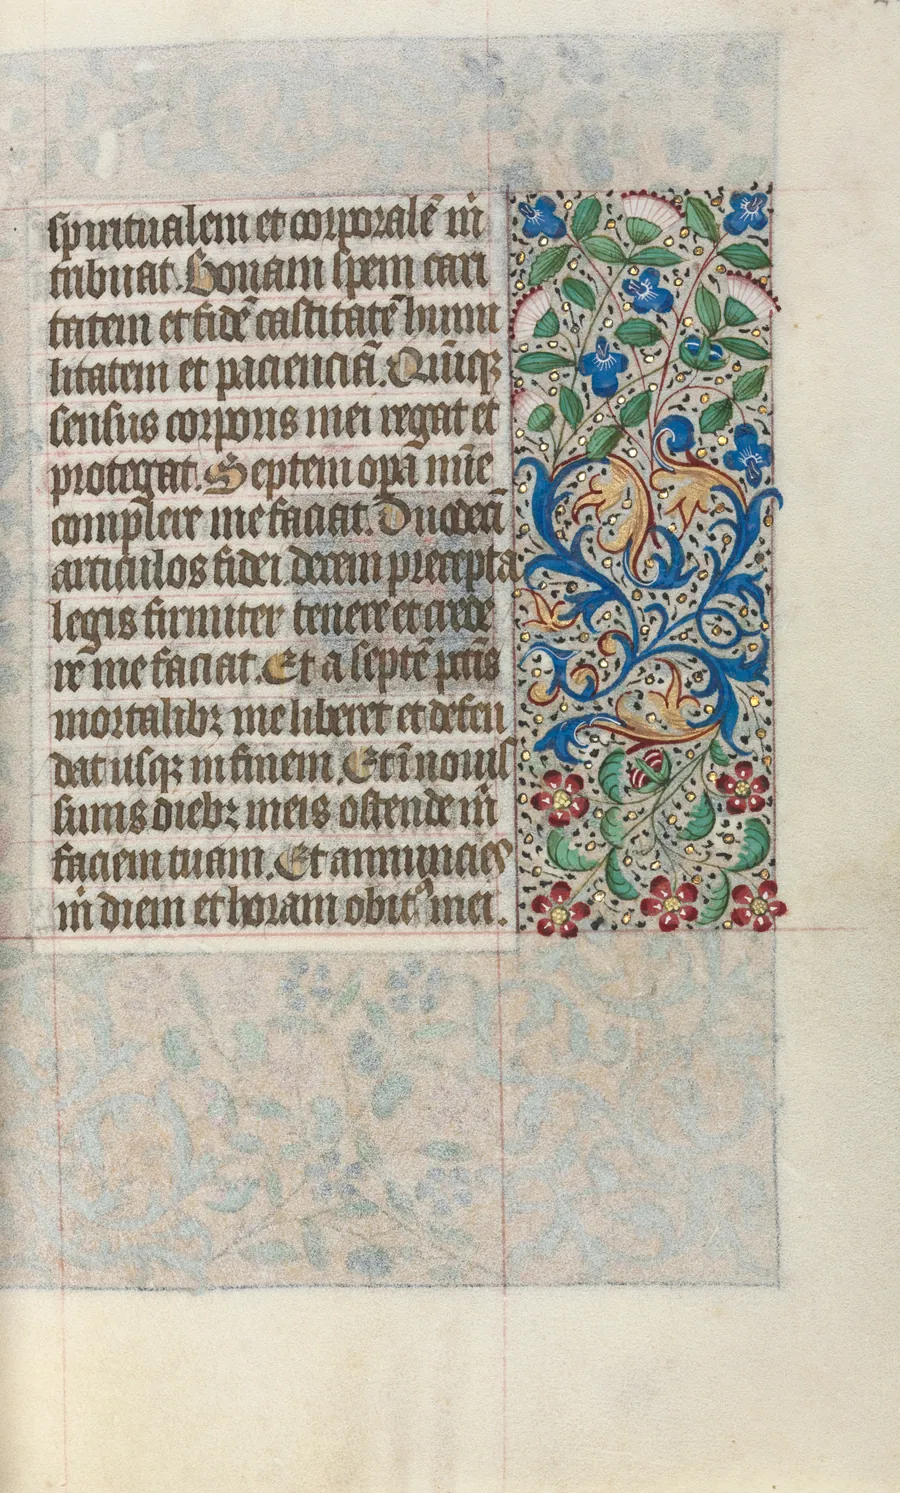 spiritualem et corporalē m̄
tribuat. Bonam spem cari
tatem et fidē castitatē humi
litatem et pacienciā. Quīqꝫ
sensus corporis mei regat et
protegat. Septem opa̅ mīe
complere me faciat. Duodecī
articulos fidei decem precepta
legis firmiter tenere et crede
re me faciat. Et a septē pctīs
mortalibꝫ me liberet et defen
dat usqꝫ in finem. Et ī novis
simis diebꝫ meis ostende m̄
faciem tuam. Et annuncies
m̄ diem et horam obitꝰ mei.